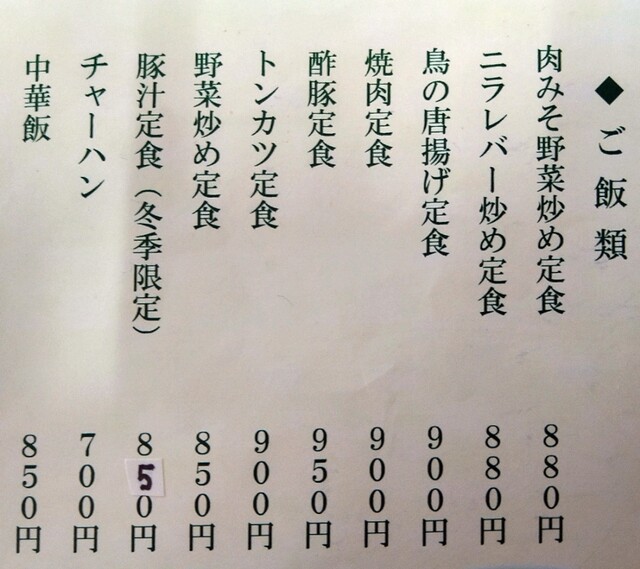 ◆ご飯類
肉みそ野菜炒め定食 880円
ニラレバー炒め定食 880円
鳥の唐揚げ定食 900円
焼肉定食 900円
酢豚定食 950円
トンカツ定食 900円
野菜炒め定食 850円
豚汁定食（冬季限定） 850円
チャーハン 700円
中華飯 850円